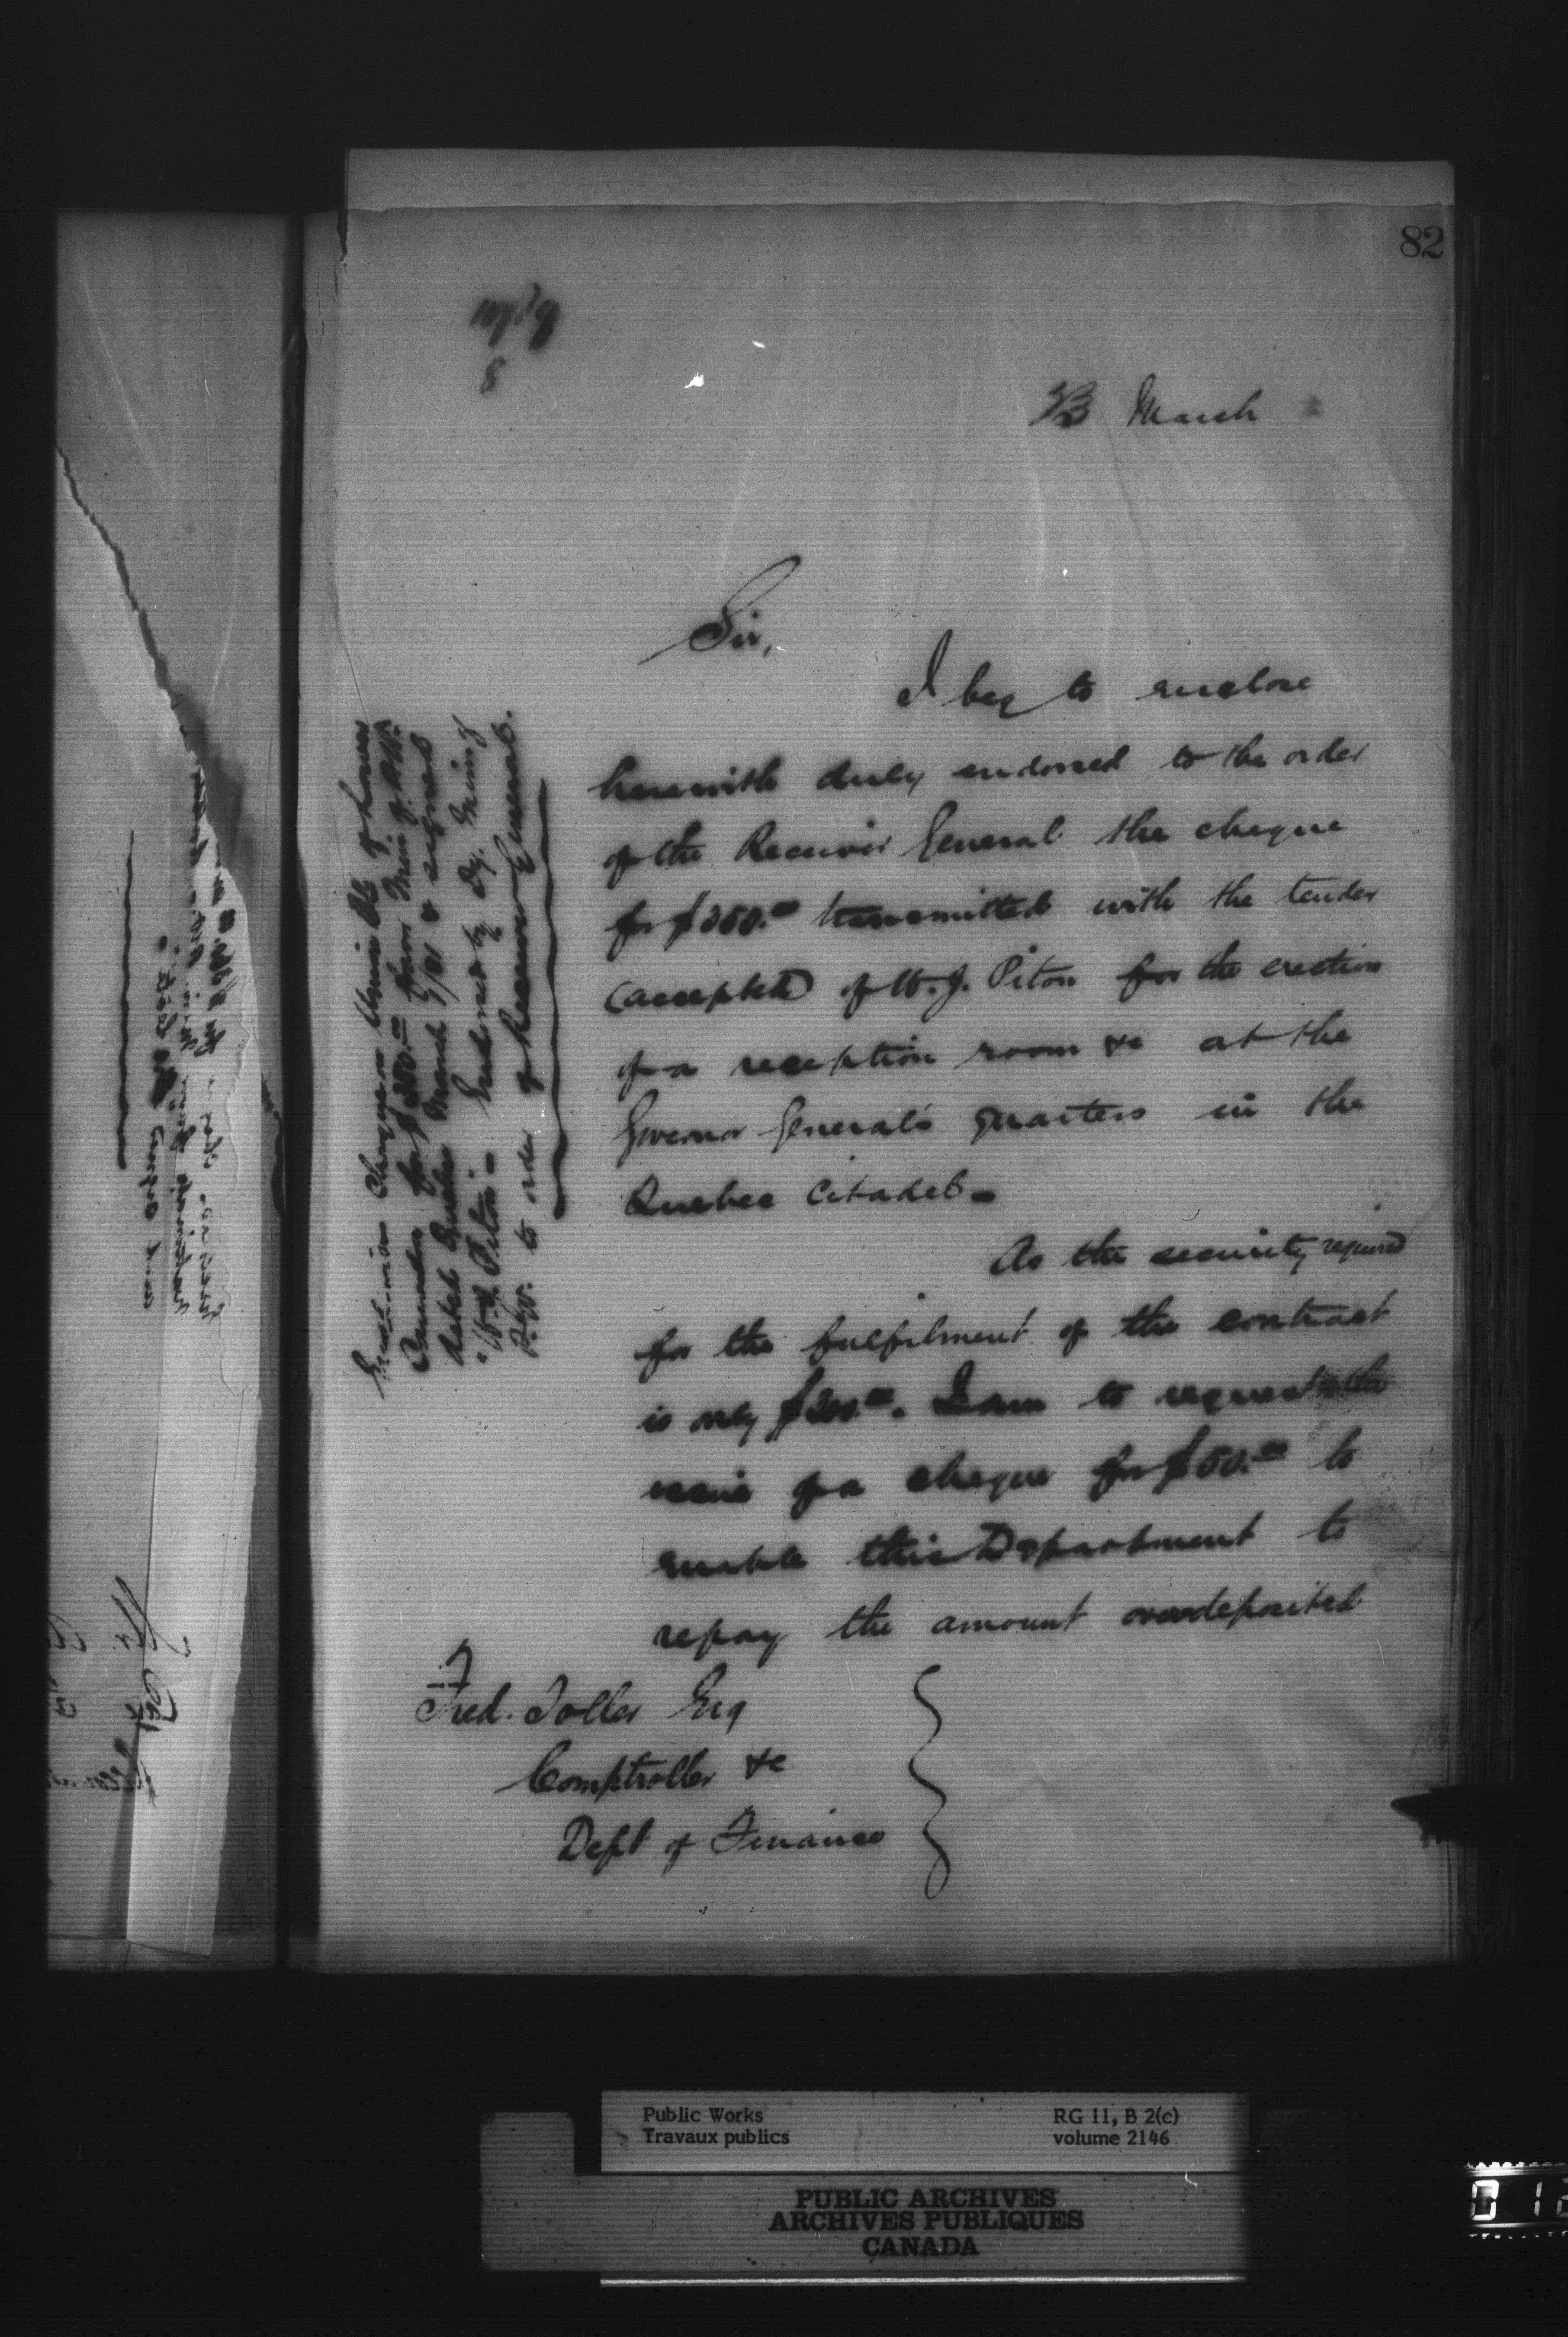 82
March
Sir,
I beg to enclose
herewith duly endorsed to the order
of the Receiver General the cheque
for $350.00 transmitted with the tender
(accepted) of W. J. Piton for the erection
of a reception room &c at the
Governor General's quarters in the
Quebec Citadel -
As the security required
for the fulfilment of the contract
is only $300.00. I am to request the
issue of a cheque for $50.00 to
enable this Department to
repay the amount overdeposited
Fred. Toller Esq
Comptroller &c
Dept of Finance
Cheque on Union Bk of Lower
Canada for $350.00 favor Min of P.W.
dated Quebec March 9/81 & signed
"W. J. Piton - Endorsed by Dy. Min of
P.W. to order of Receiver General.
Public Works
Travaux publics
RG 11, B 2(c)
volume 2146
PUBLIC ARCHIVES
ARCHIVES PUBLIQUES
CANADA